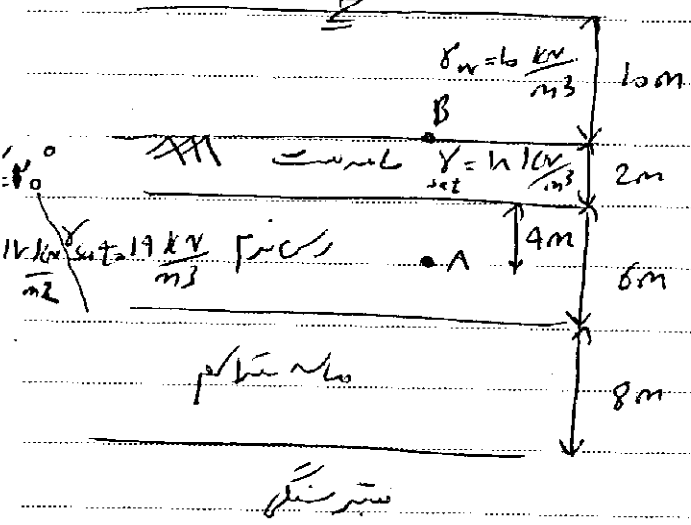 γw = 10 kN/m3 10m
B
ماسه سست γsat = 2m
γsat = 19 kN/m3 رس نرم A 4m 6m
ماسه متراکم 8m
بستر سنگی